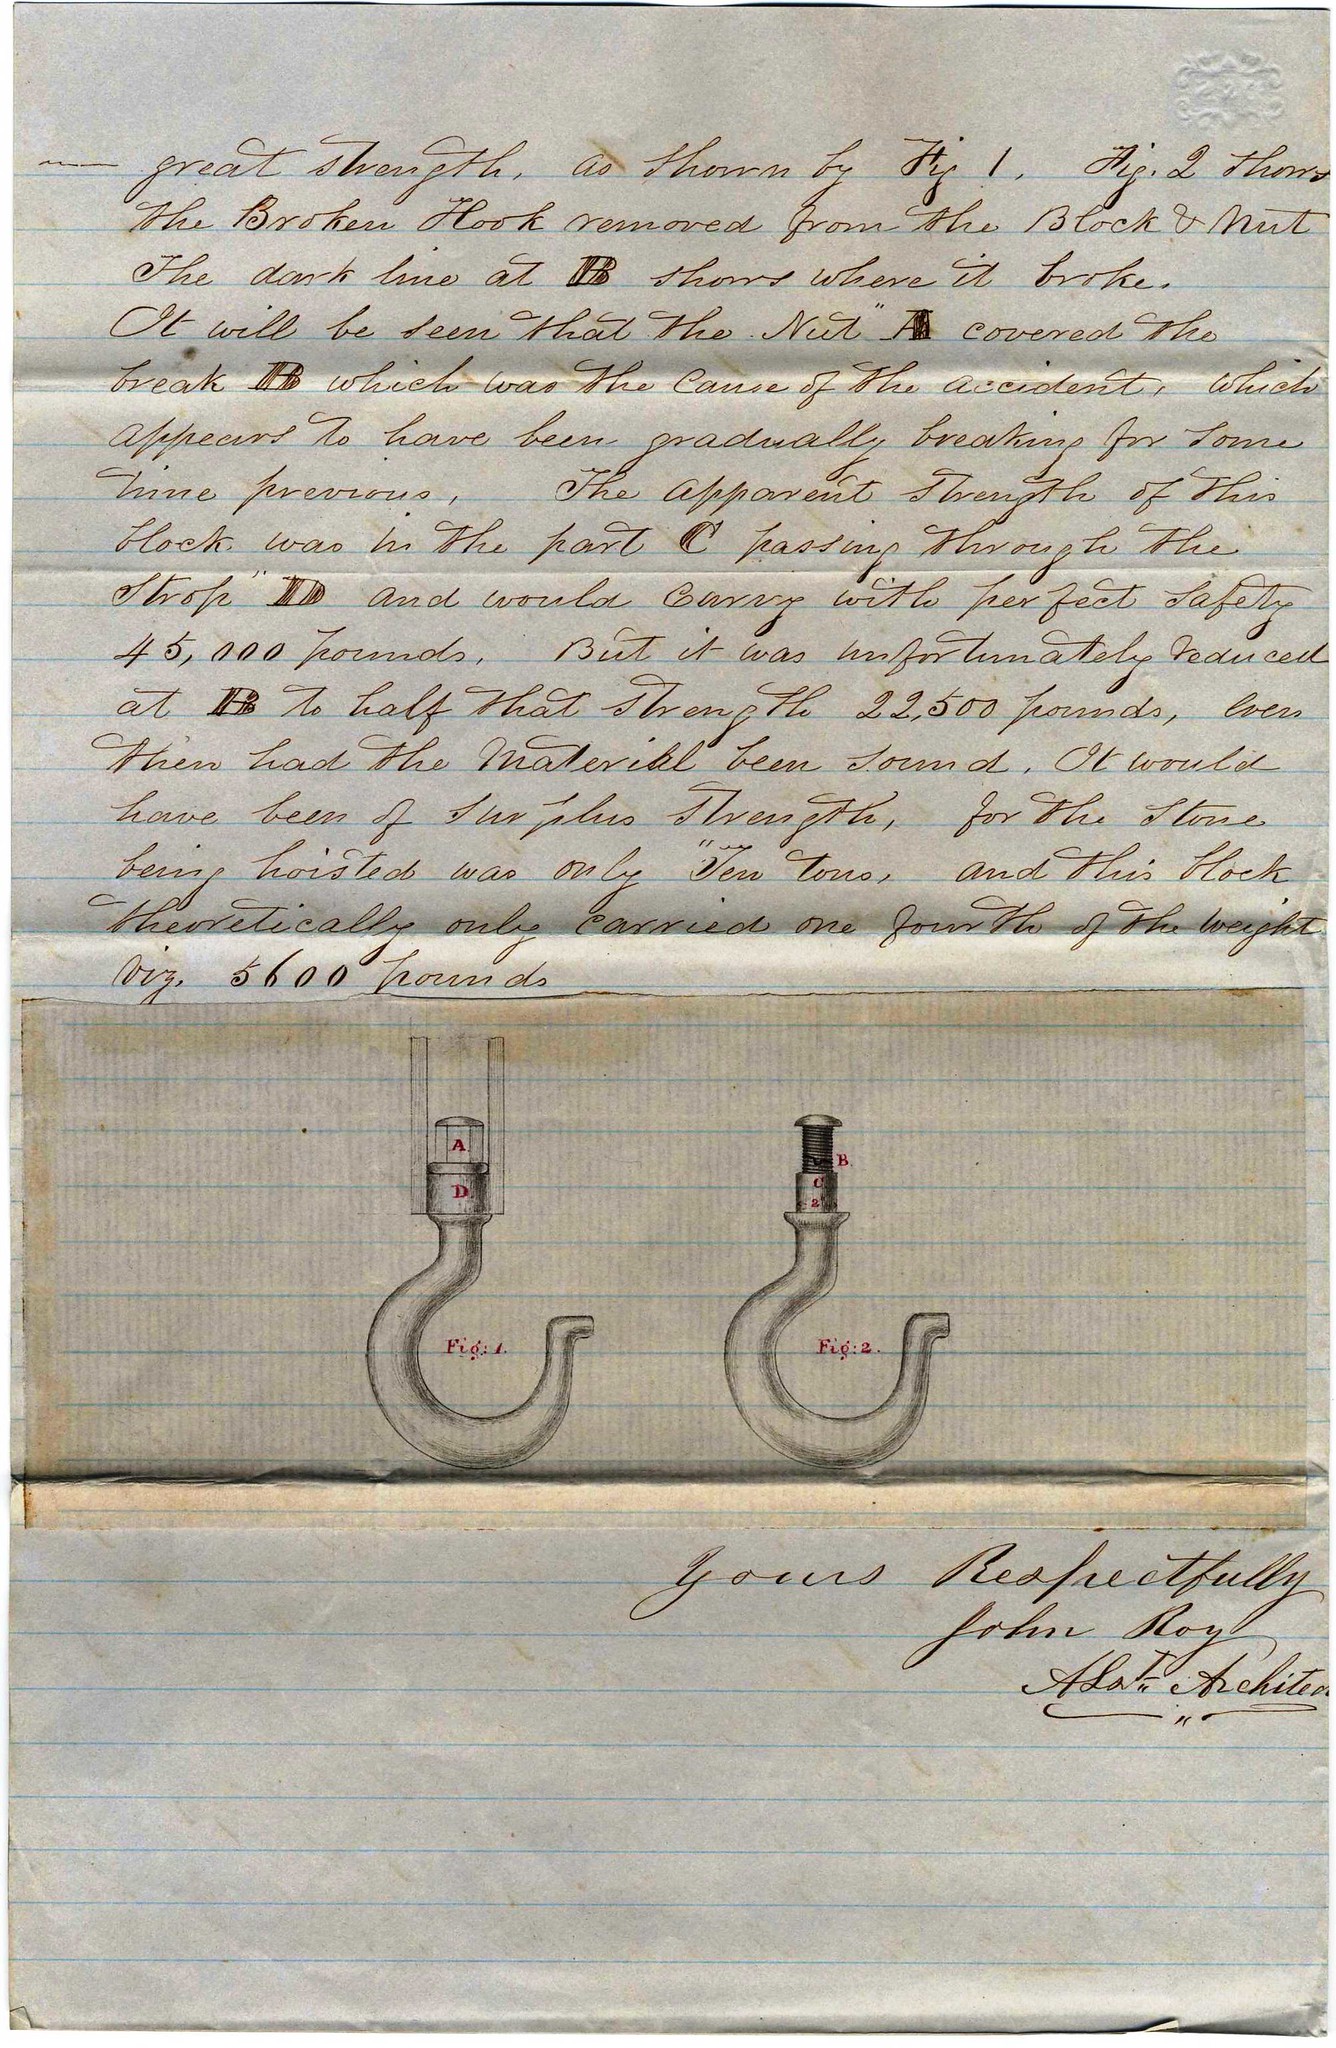 great strength, as shown by Fig 1. Fig. 2 shows
the Broken Hook removed from the Block & Nut
The dark line at B shows where it broke.
It will be seen that the Nut "A covered the
break B which was the cause of the accident, which
appears to have been gradually breaking for some
time previous, The apparent strength of this
block was in the part C passing through the
Strop "D and would carry with perfect safety
45,000 pounds. But it was unfortunately reduced
at B to half that strength 22,500 pounds, even
then had the Material been sound. It would
have been of surplus strength, for the Stone
being hoisted was only "Ten tons, and this block
theoretically only carried one fourth of the weight
viz. 5600 pounds
A
B
D
C
2
Fig: 1.
Fig: 2.
Yours Respectfully
John Roy
Asst. Architec